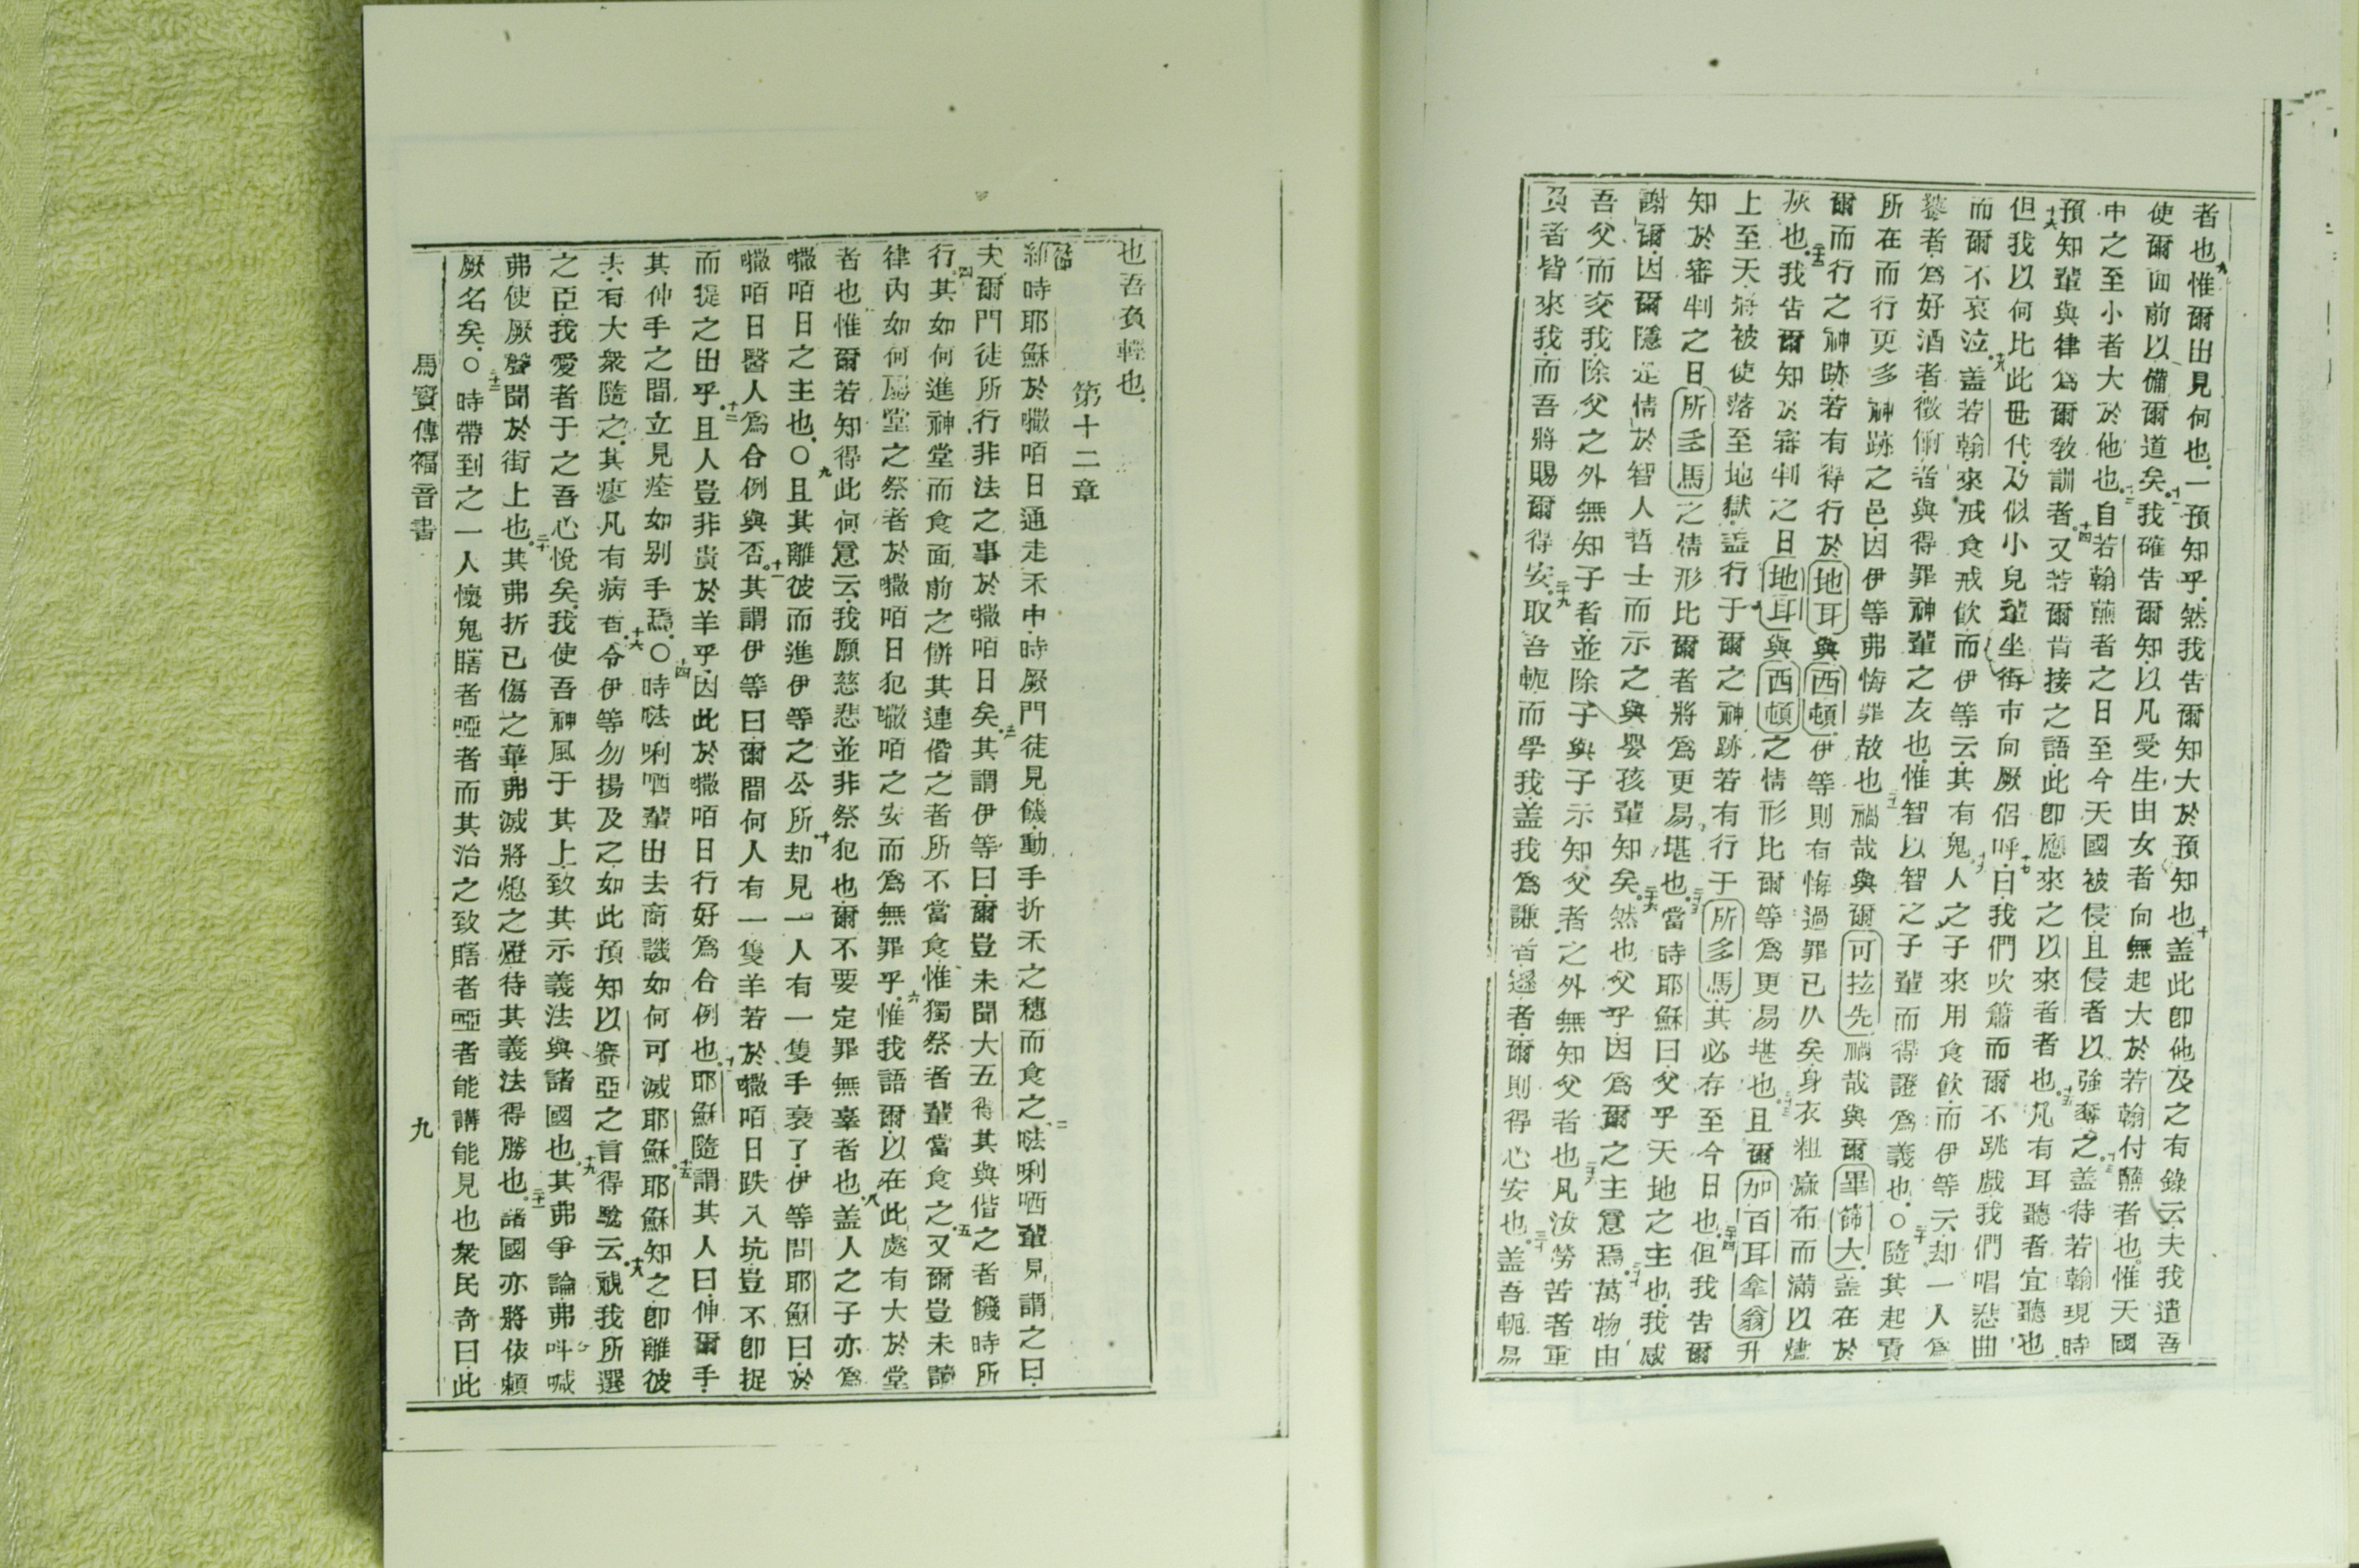 者也惟爾出見何也一預知乎然我告爾知大於預知也十盖此卽他及之有錄云夫我遣吾
使爾面前以備爾道矣十一我確告爾知以凡受生由女者向無起大於若翰付蘸者也惟天國
中之至小者大於他也十二自若翰蘸者之日至今天國被侵且侵者以強奪之十三盖待若翰現時
預知輩與律爲爾敎訓者十四又若爾肯接之語此卽應來之以來者者也十五凡有耳聽者宜聽也
十六但我以何比此世代乃似小兒輩坐街市向厥侶呼十七曰我們吹簫而爾不跳戲我們唱悲曲
而爾不哀泣十八盖若翰來戒食戒飲而伊等云其有鬼十九人之子來用食飲而伊等云却一人爲
饕者爲好酒者徵衙者與得罪神輩之友也惟智以智之子輩而得證爲義也○二十隨其起責
所在而行更多神跡之邑因伊等弗悔罪故也二十一禍哉與爾可拉先禍哉與爾畢篩大盖在於
爾而行之神跡若有得行於地耳與西頓伊等則有悔過罪已久矣身衣粗麻布而滿以爐
灰也二十二我告爾知於審判之日地耳與西頓之情形比爾等爲更易堪也二十三且爾加百耳拿翁升
上至天將被使落至地獄盖行于爾之神跡若有行于所多馬其必存至今日也二十四但我告爾
知於審判之日所多馬之情形比爾者將爲更易堪也二十五當時耶穌曰父乎天地之主也我感
謝爾因爾隱是情於智人哲士而示之與嬰孩輩知矣二十六然也父乎因爲爾之主意焉二十七萬物由
吾父而交我除父之外無知子者並除子與子示知父者之外無知父者也二十八凡汝勞苦者重
負者皆來我而吾將賜爾得安二十九取吾軛而學我盖我爲謙首遜者爾則得心安也三十盖吾軛易
也吾負輕也
第十二章
維時耶穌於嚫咟日通走禾中時厥門徒見饑動手折禾之穗而食之二㗓唎哂輩見謂之曰
夫爾門徒所行非法之事於嚫咟日矣三其謂伊等曰爾豈未聞大五得其與偕之者饑時所
行四其如何進神堂而食面前之餅其連偕之者所不當食惟獨祭者輩當食之五又爾豈未讀
律內如何厥堂之祭者於嚫咟日犯嚫咟之安而爲無罪乎六惟我語爾以在此處有大於堂
者也惟爾若知得此何意云我願慈悲並非祭犯也爾不要定罪無辜者也八盖人之子亦爲
嚫咟日之主也○九且其離彼而進伊等之公所十却見一人有一隻手衰了伊等問耶穌曰於
嚫咟日醫人爲合例與否十一其謂伊等曰爾間何人有一隻羊若於嚫咟日跌入坑豈不卽捉
而提之出乎十二且人豈非貴於羊乎因此於嚫咟日行好爲合例也十三耶穌隨謂其人曰伸爾手
其伸手之間立見痊如别手焉○十四時㗓唎哂輩出去商議如何可滅耶穌十五耶穌知之卽離彼
去有大衆隨之其瘳凡有病者十六令伊等勿揚及之如此預知以賽亞之言得騐云十八視我所選
之臣我愛者于之吾心悅矣我使吾神風于其上致其示義法與諸國也十九其弗爭論弗呌喊
弗使厥聲聞於街上也二十其弗折已傷之葦弗滅將熄之燈待其義法得勝也二十一諸國亦將依賴
厥名矣○二十二時帶到之一人懷鬼瞎者啞者而其治之致瞎者啞者能講能見也衆民奇曰此
馬竇傳福音書
九